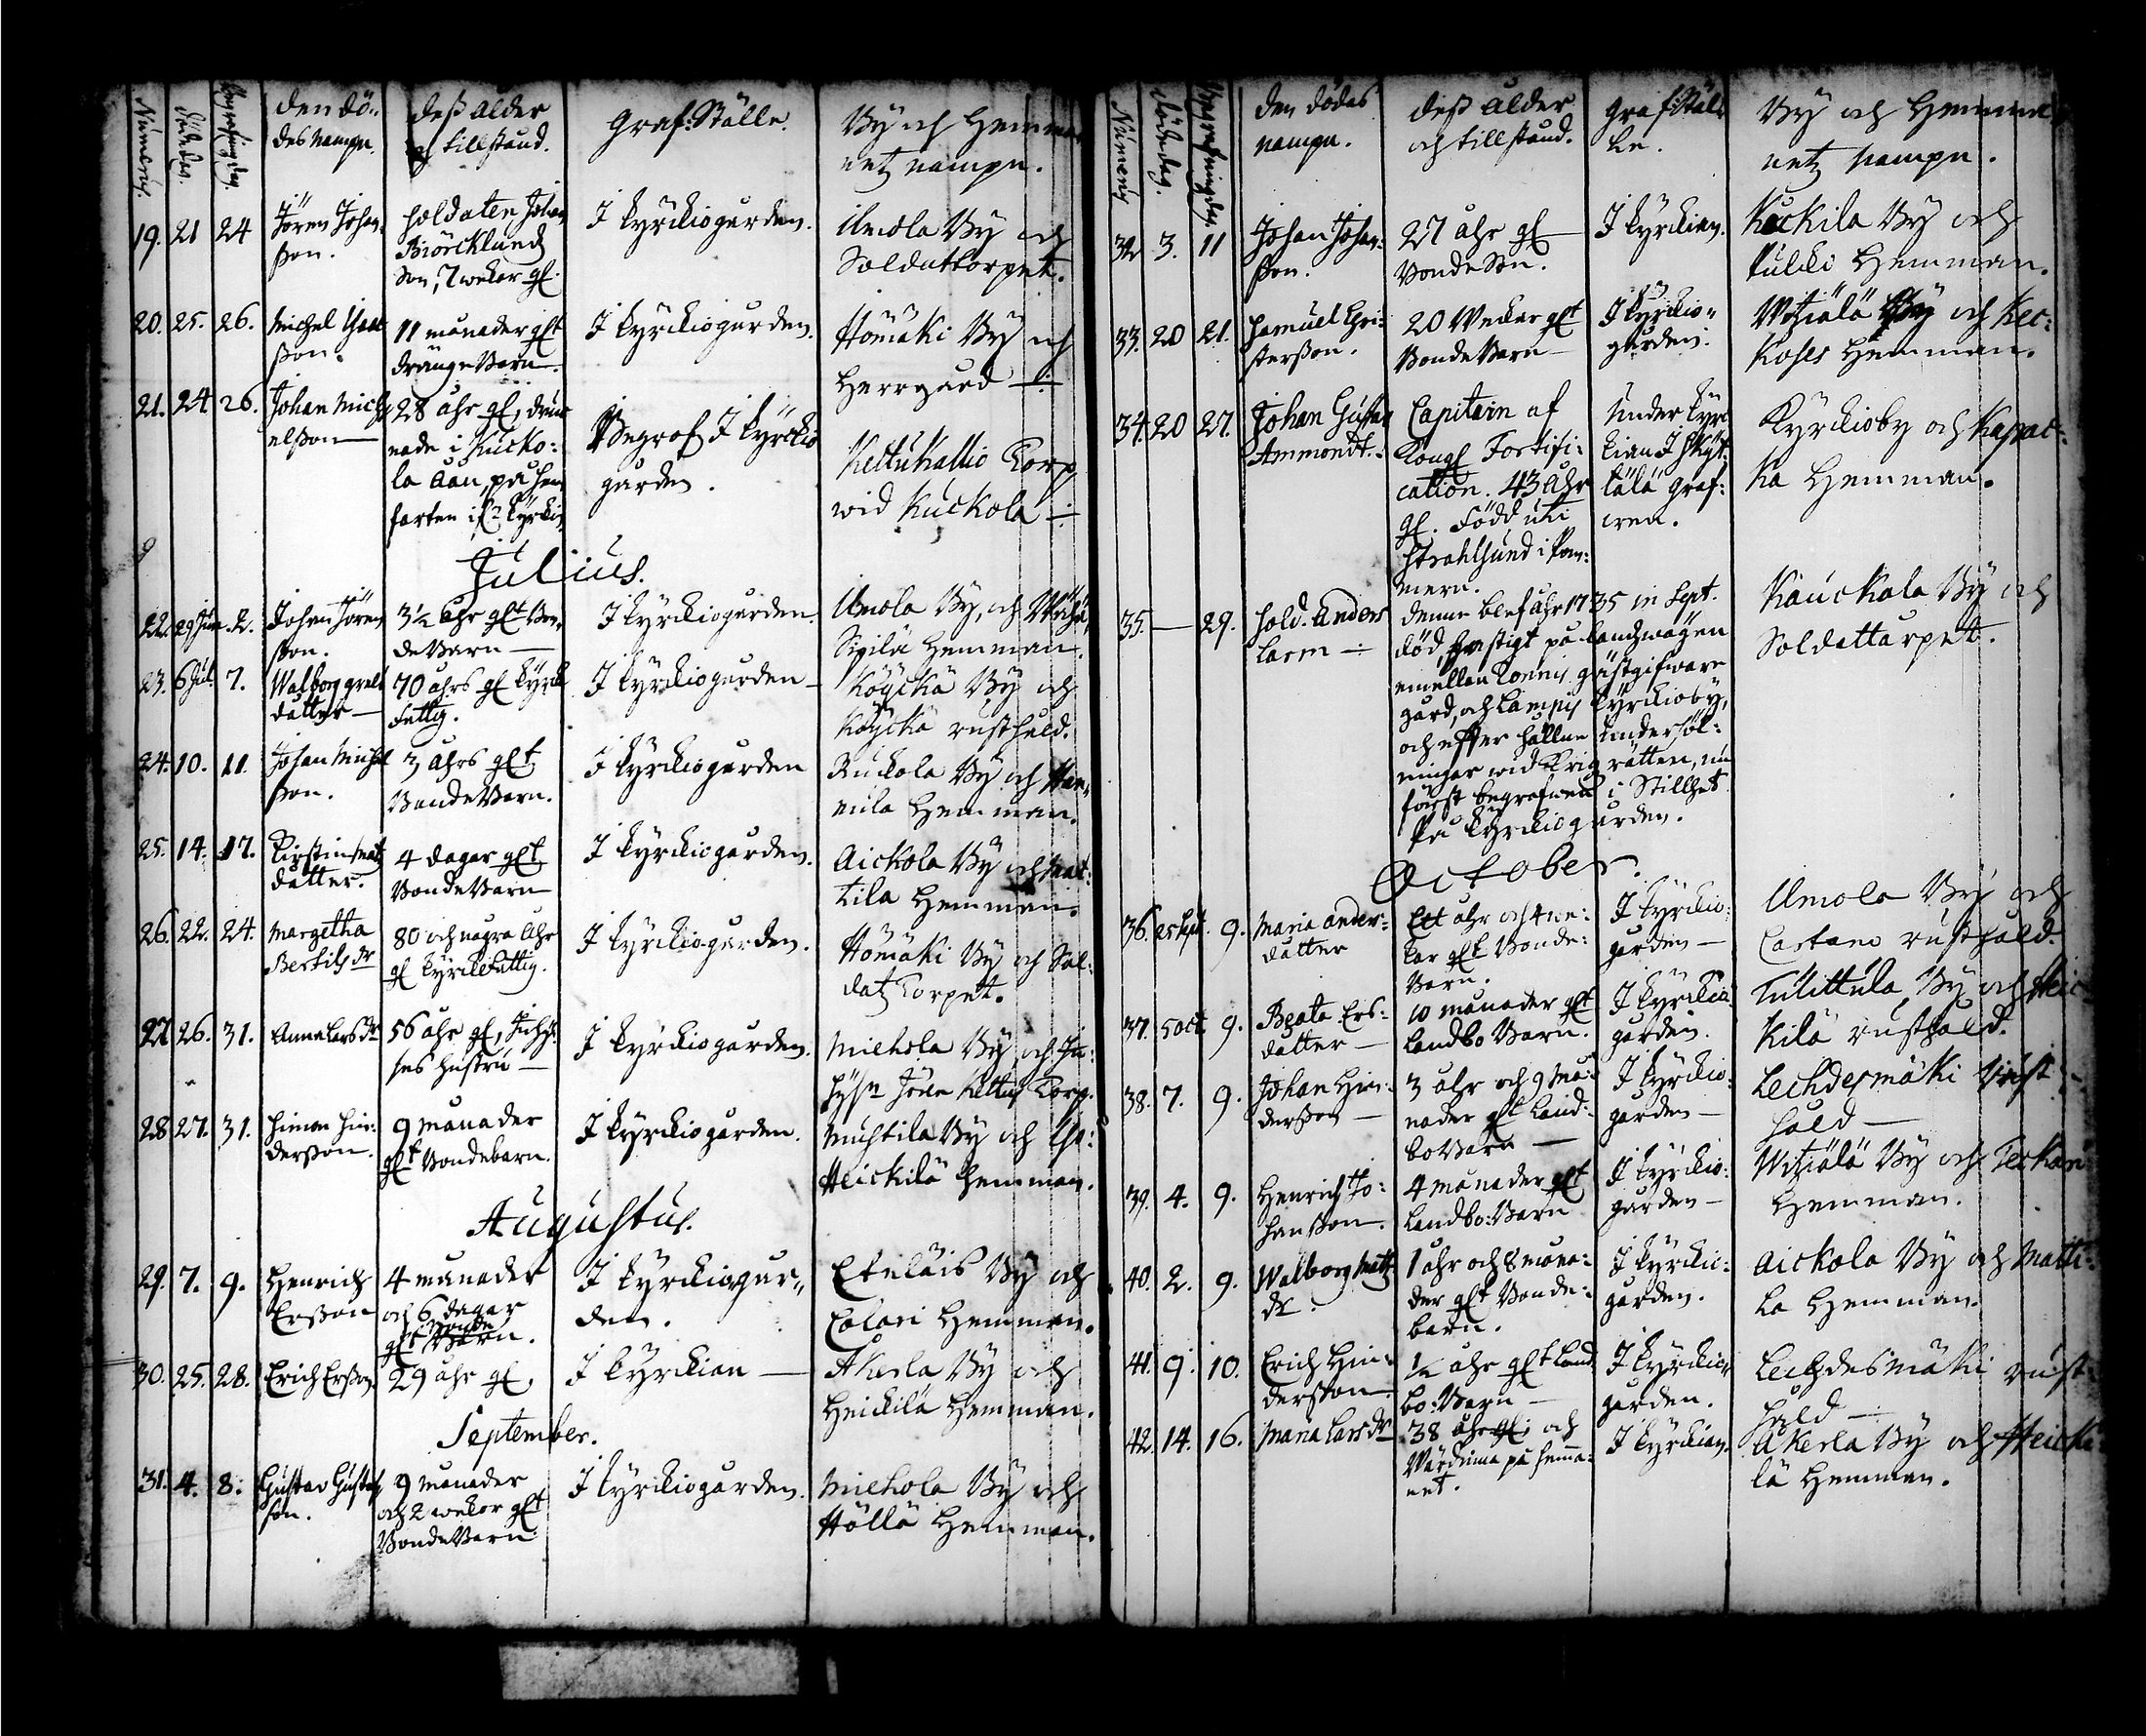 Numerus.
dödedag.
Begrafningsdag.
den dö-
des nampn.
dess ålder
och tillstånd.
Graf: Ställe.
By och Hemma-
netz nampn.
19. 21 24
Jören Johan-
sson.
soldaten Johan
Biörcklundz
Son, 7 wekor gl.
I kyrkiogården.
Ilmola By och
Soldattorpet.
20. 25. 26.
Michel
sson.
11 månader glt
dränge Barn
I kyrkiogården.
Hömäki By och
Herrgård
21. 24 26.
Johan Mich-
elsson
28 åhr gl, drunc-
nade i Kucko:
la åån, på hem
farten ifr. kyrkio
Begrof. I kyrkio
gården.
Kettukallio Torp
wid Kuckola
Julius.
22. 29 Jun. 2.
Johan Jören-
sson.
3½ åhr glt Bon-
de Barn
I kyrkiogården
Ilmola By, och
Sipilä Hemman.
23. 6 Jul. 7.
Walborg Grels
dotter
70 åhrs gl kyrk
Fattig.
I kyrkiogården
Köyckä By och
Köyckä rusthåld.
24. 10. 11.
Johan Michel
sson.
3 åhrs glt
Bonde Barn.
I kyrkiogården
Ruckola By och Han-
nula Hemman.
25. 14. 17.
Kirstin Matz
dotter.
4 dagar glt
Bonde Barn
I kyrkiogården.
Aickola By och Mat-
tila Hemman.
26. 22. 24.
Margetha
Bertils dr
80 och några åhr
gl kyrckFattig.
I kyrkiogården.
Hömäki By och Sol-
datz Torpet.
27. 26. 31.
Anna Lars dr
56 åhr gl, Inhys-
ses hustru
I kyrkiogården.
Miehola By och In-
hys Jören Kettus Torp.
28 27. 31.
Simon Hin-
dersson.
9 månader
glt Bondebarn.
I kyrkiogården.
Muhtila By och
Heickilä hemman.
Augustus.
29. 7. 9.
Henrich
Ersson
4 månader
och 6 dagar
glt Bonde Barn.
I kyrkiogår-
den.
Eteläis By och
Calari Hemman.
30. 25. 28.
Erich Ersson.
29 åhr gl,
I kyrkian
Åkerla By och
Heickilä Hemman.
September.
31. 4. 8.
Gustav Gustaf-
son.
9 månader
och 2 wekor glt
Bonde Barn
I kyrkiogården.
Miehola By och
Höllä Hemman.
Numerus
dödedag.
Begrafningsdag.
den dödas
nampn.
dess ålder
och tillstånd.
grafStäl-
le.
By och Hemma-
netz nampn.
32 3. 11
Johan Johan-
sson.
27 åhr gl
Bonde Son.
I kyrkian.
Kåckila By och
Pulcki Hemman.
33. 20 21.
Samuel Chri-
stersson.
20 Weckor glt
Bonde Barn
I kyrkio-
gården.
Witziälä By och Kec-
koses Hemman.
34. 20 27.
Johan Gustav
Ammondt.
Capitain af
Kongl Fortifi-
cation. 43 åhr
gl. Född uti
Strahlsund i Pom-
mern.
Under kyrc-
kian I Skyt-
tälä graf-
wen.
Kyrkioby och Kapac-
ka Hemman.
35. — 29.
Sold. Anders
Larm
denne blef åhr 1735 in Sept.
död, hastigt på landzwägen
emellan Tonnis gästgifware
gård, och Lampis kyrkioby,
och efter hållne undersök-
ningar wid Krigzrätten, nu
först begrafwen i Stillhet
På kyrkiogården.
Kauckola By och
Soldattarpet.
October.
36. 25 Sept. 9.
Maria Anders-
dotter
Ett åhr och 4 we-
kor glt Bonde-
Barn.
I kyrkio-
gården
Ilmola By och
Cartano rusthåld.
37. 5 Oct. 9.
Beata Ers-
dotter
10 månader glt
Landbo Barn.
I kyrkio-
gården.
Tulittula By och Heic-
kilä rusthåld.
38. 7. 9.
Johan Hin-
dersson
3 åhr och 9 må-
nader glt Land-
bo Barn
I kyrkio-
gården
Lechdesmäki Rust-
håld
39. 4. 9.
Henrich Jo-
hansson.
4 månader glt
Landbo: Barn
I kyrkio-
gården
Witziälä By och
Hemman.
40. 2. 9.
Walborg Matz
dr.
1 åhr och 8 måna-
der glt Bonde-
barn.
I kyrkio-
gården.
Aickola By och Matti-
la Hemman.
41. 9. 10.
Erich Hin-
dersson
½ åhr glt Land-
bo: Barn
I kyrkio-
gården.
Lechdesmäki rust-
håld
42. 14. 16.
Maria Lars dr
38 åhr gl; och
Wärdinna på hemma-
net.
I kyrkian.
Åkerla By och Heicki-
lä Hemman.